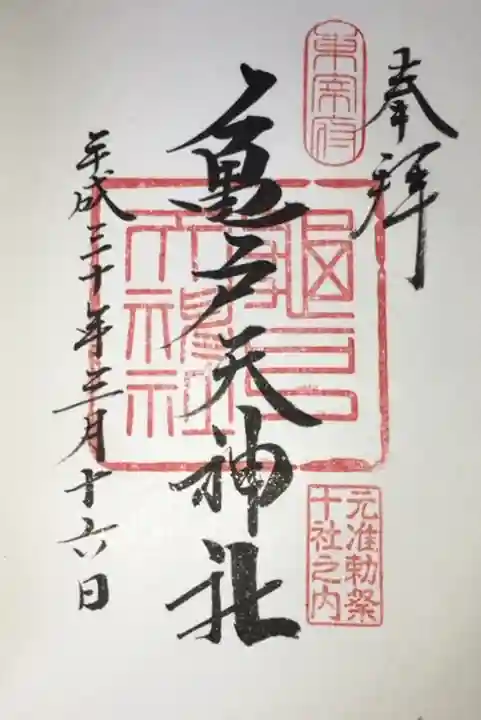 奉拝
東宰府
亀戸天神社
元准勅祭
十社之内
平成三十年三月十六日